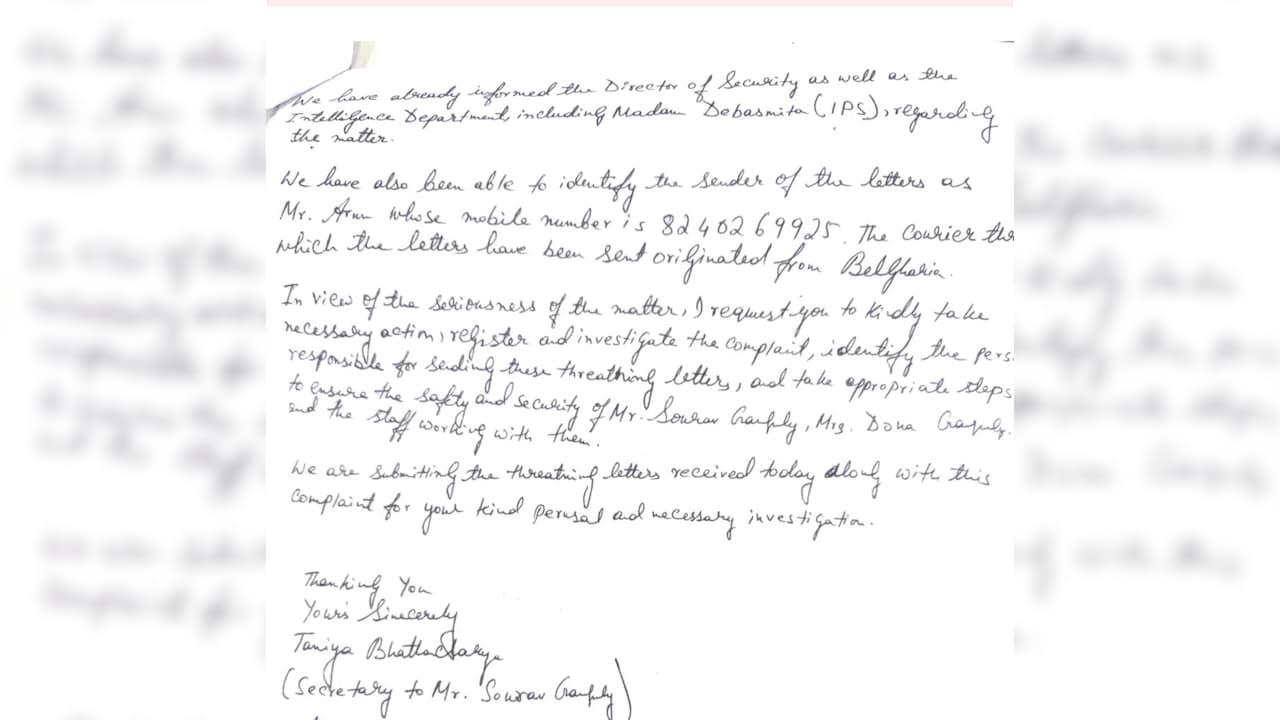 We have already informed the Director of Security as well as the
Intelligence Department, including Madam Debasmita (IPS), regarding
the matter.
We have also been able to identify the sender of the letters as
Mr. Arun whose mobile number is 8240269925. The Courier thr
which the letters have been sent originated from Belgharia.
In view of the seriousness of the matter, I request you to kindly take
necessary action, register and investigate the complaint, identify the pers
responsible for sending these threathning letters, and take appropriate steps
to ensure the safety and security of Mr. Sourav Ganguly, Mrs. Dona Ganguly.
and the staff working with them.
We are submitting the threatning letters received today along with this
complaint for your kind perusal and necessary investigation.
Thanking You
Your's Sincerely
Taniya Bhattacharya
(Secretary to Mr. Sourav Ganguly)